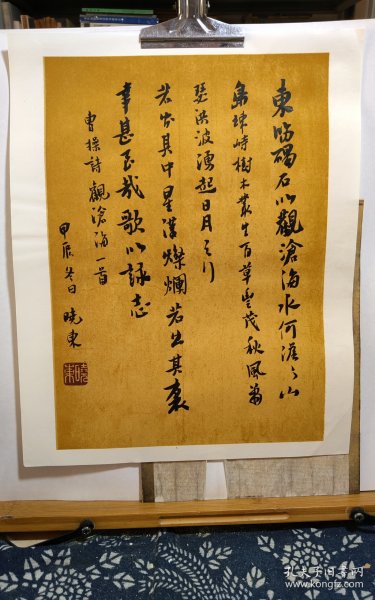 東臨碣石以觀滄海水何澹々山
島竦峙樹木叢生百草豐茂秋風蕭
瑟洪波湧起日月之行
若出其中星漢燦爛若出其裏
幸甚至哉歌以詠志
曹操詩觀滄海一首
甲辰冬日曉東
曉東
孔夫子旧书网
www.kongfz.com